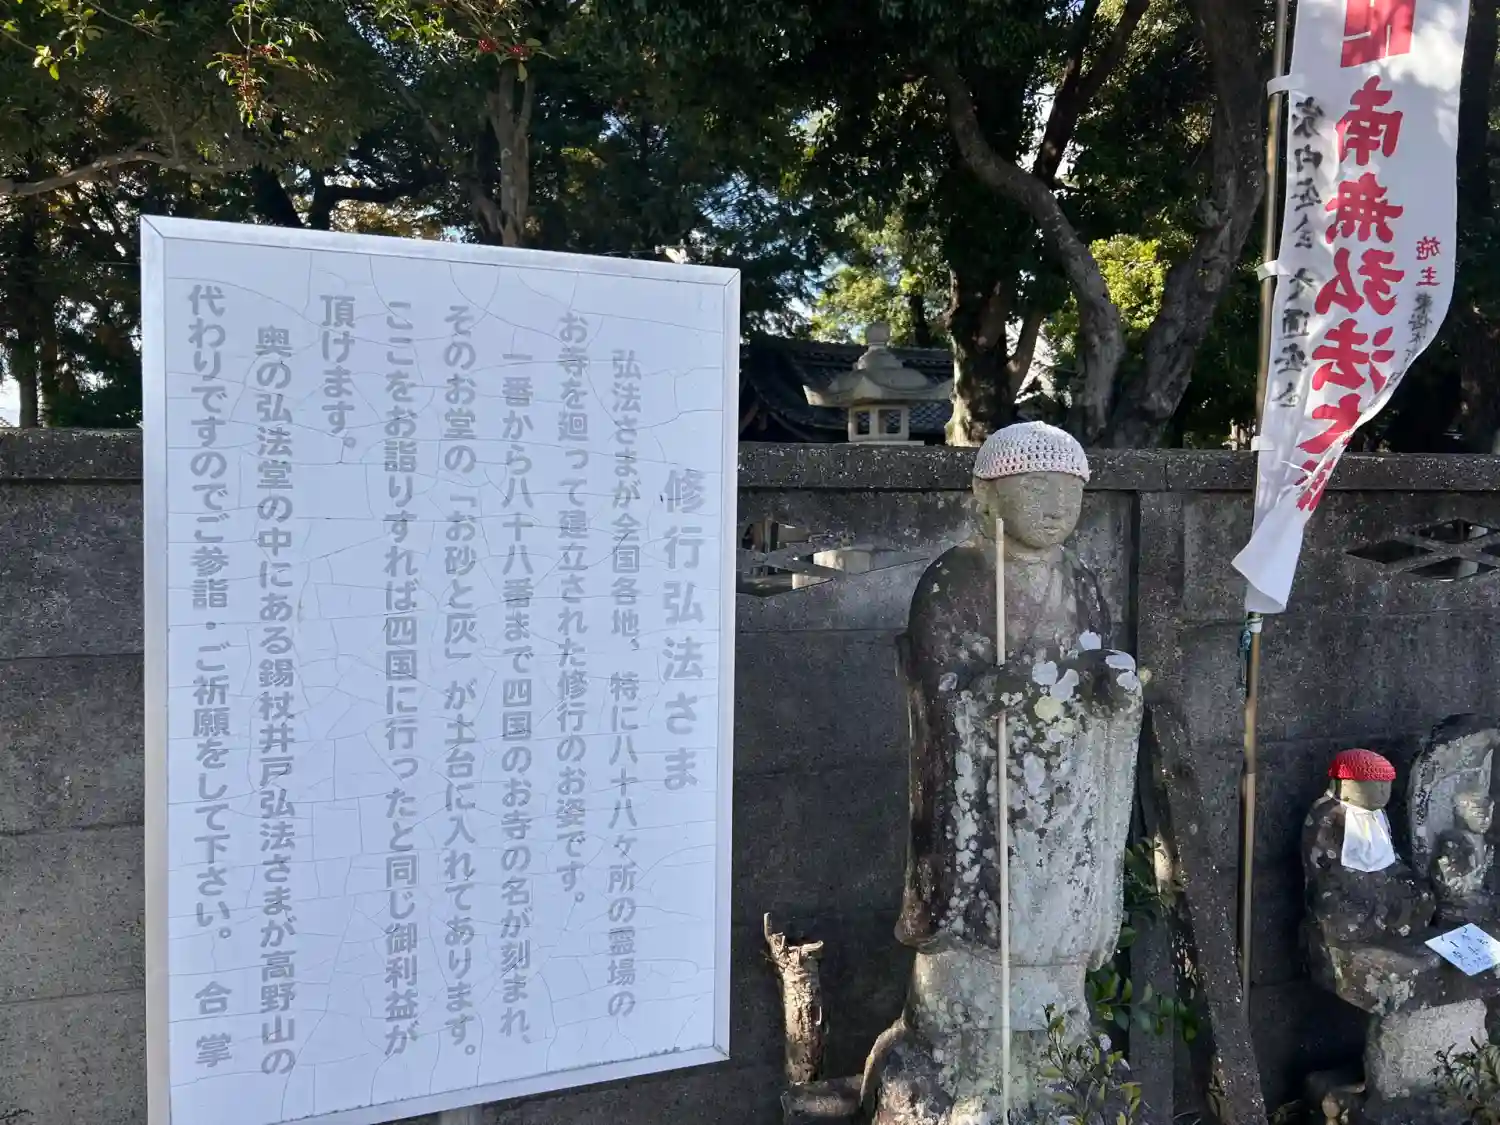 修行弘法さま
弘法さまが全国各地、特に八十八ヶ所の霊場の
お寺を廻って建立された修行のお姿です。
一番から八十八番まで四国のお寺の名が刻まれ、
そのお堂の「お砂と灰」が土台に入れてあります。
ここをお詣りすれば四国に行ったと同じ御利益が
頂けます。
奥の弘法堂の中にある錫杖井戸弘法さまが高野山の
代わりですのでご参詣・ご祈願をして下さい。 合 掌
南無弘法大
家内安全 交通安全
施主